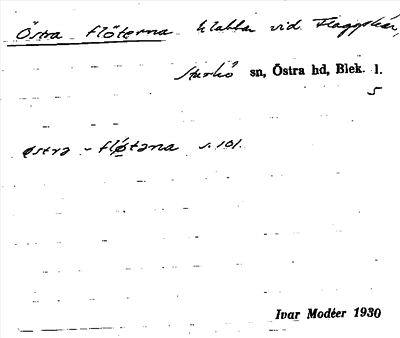 Östra flöterna klabbar vid Flaggskär,
Sturkö sn, Östra hd, Blek. l.
5
östra - flø̱tǝna s. 101.
Ivar Modéer 1930